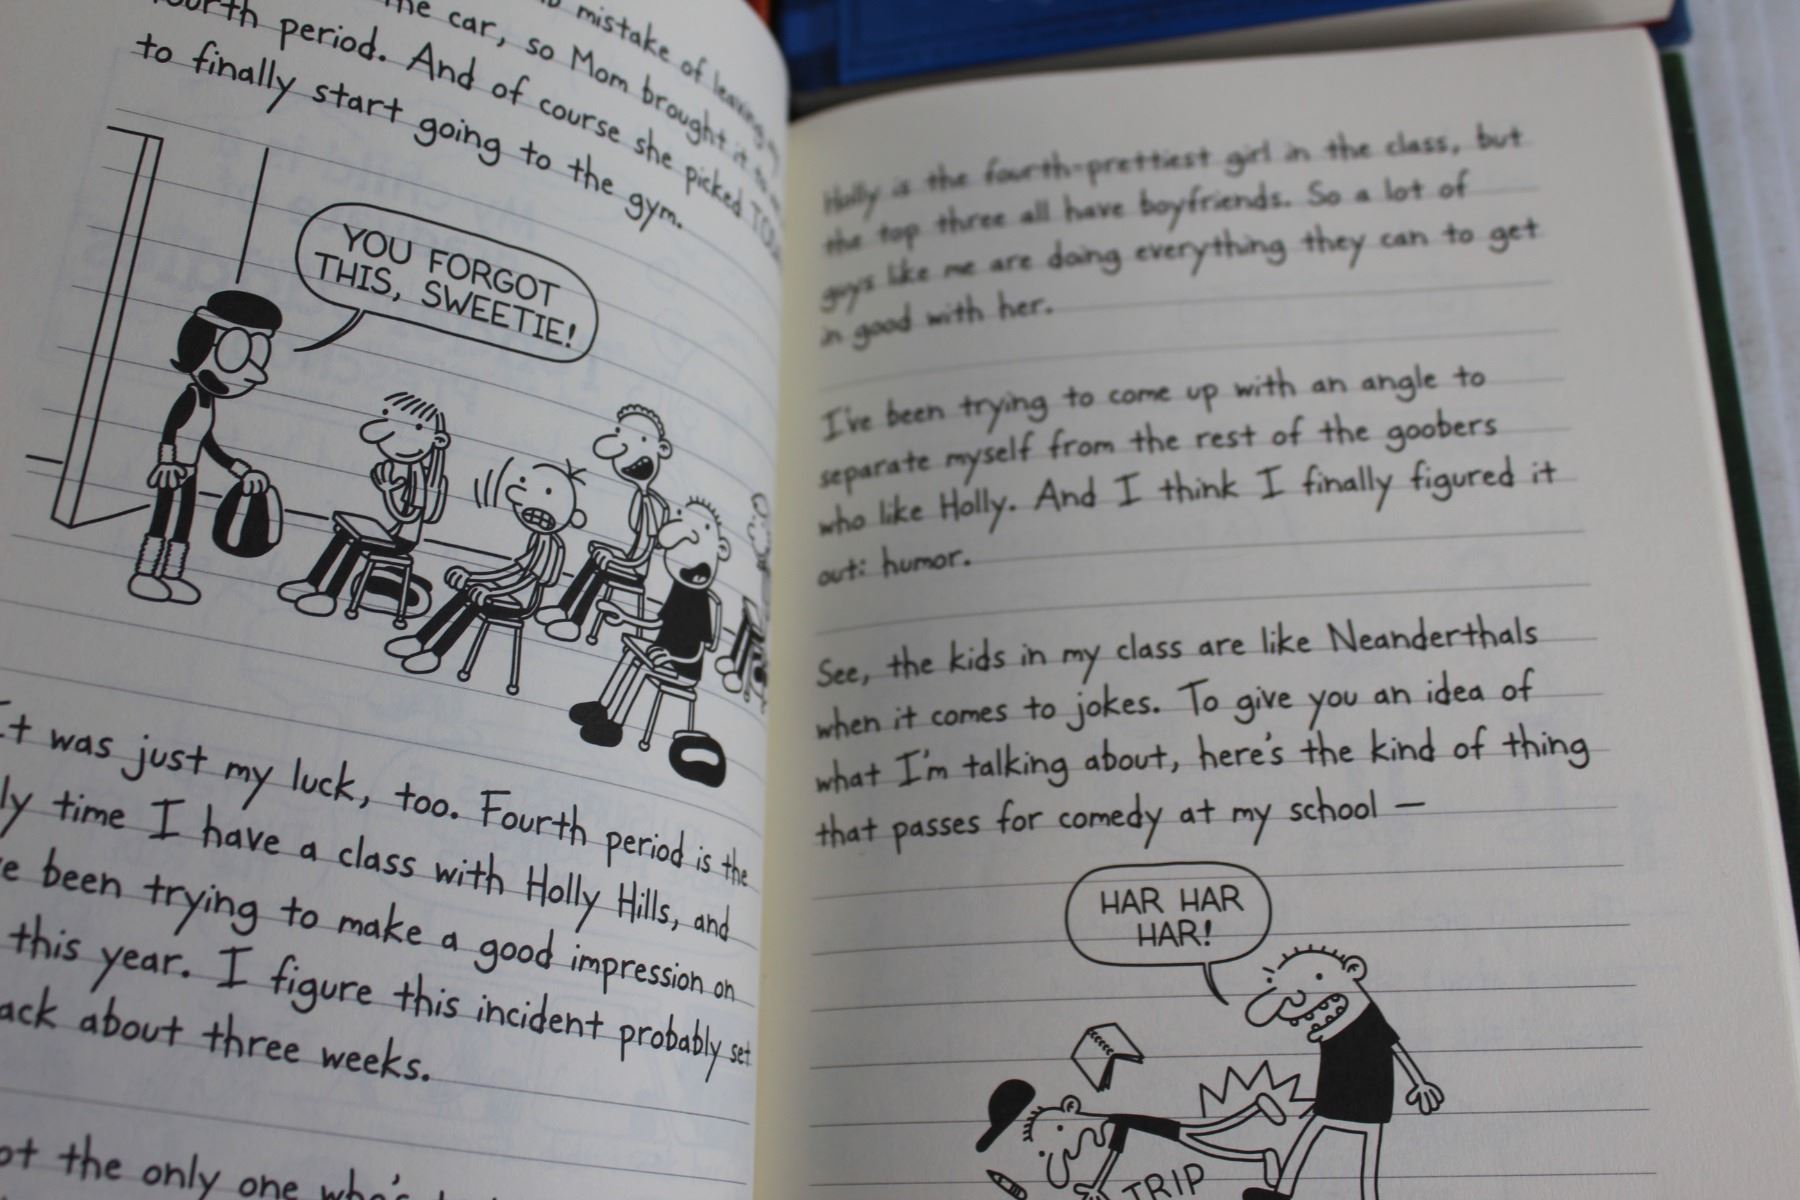 mistake of leaving
the car, so Mom brought it to
fourth period. And of course she picked
to finally start going to the gym.
YOU FORGOT
THIS, SWEETIE!
It was just my luck, too. Fourth period is the
ly time I have a class with Holly Hills, and
e been trying to make a good impression on
this year. I figure this incident probably set
ack about three weeks.
ot the only one who's
Holly is the fourth-prettiest girl in the class, but
the top three all have boyfriends. So a lot of
guys like me are doing everything they can to get
in good with her.
I've been trying to come up with an angle to
separate myself from the rest of the goobers
who like Holly. And I think I finally figured it
out: humor.
See, the kids in my class are like Neanderthals
when it comes to jokes. To give you an idea of
what I'm talking about, here's the kind of thing
that passes for comedy at my school —
HAR HAR
HAR!
TRIP